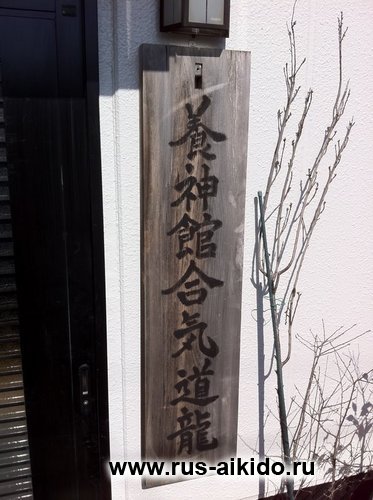 養神館合気道龍
www.rus-aikido.ru